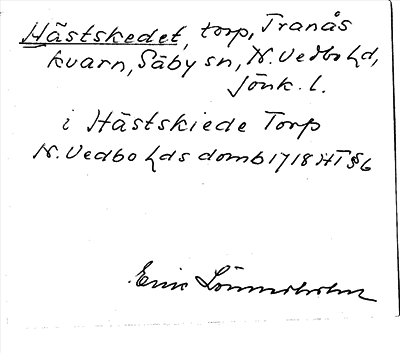 Hästskedet, torp, Tranås
kvarn, Säby sn, N. Vedbo hd,
Jönk. l.
i Hästskiede Torp
N. Vedbo hds domb 1718 HT § 6